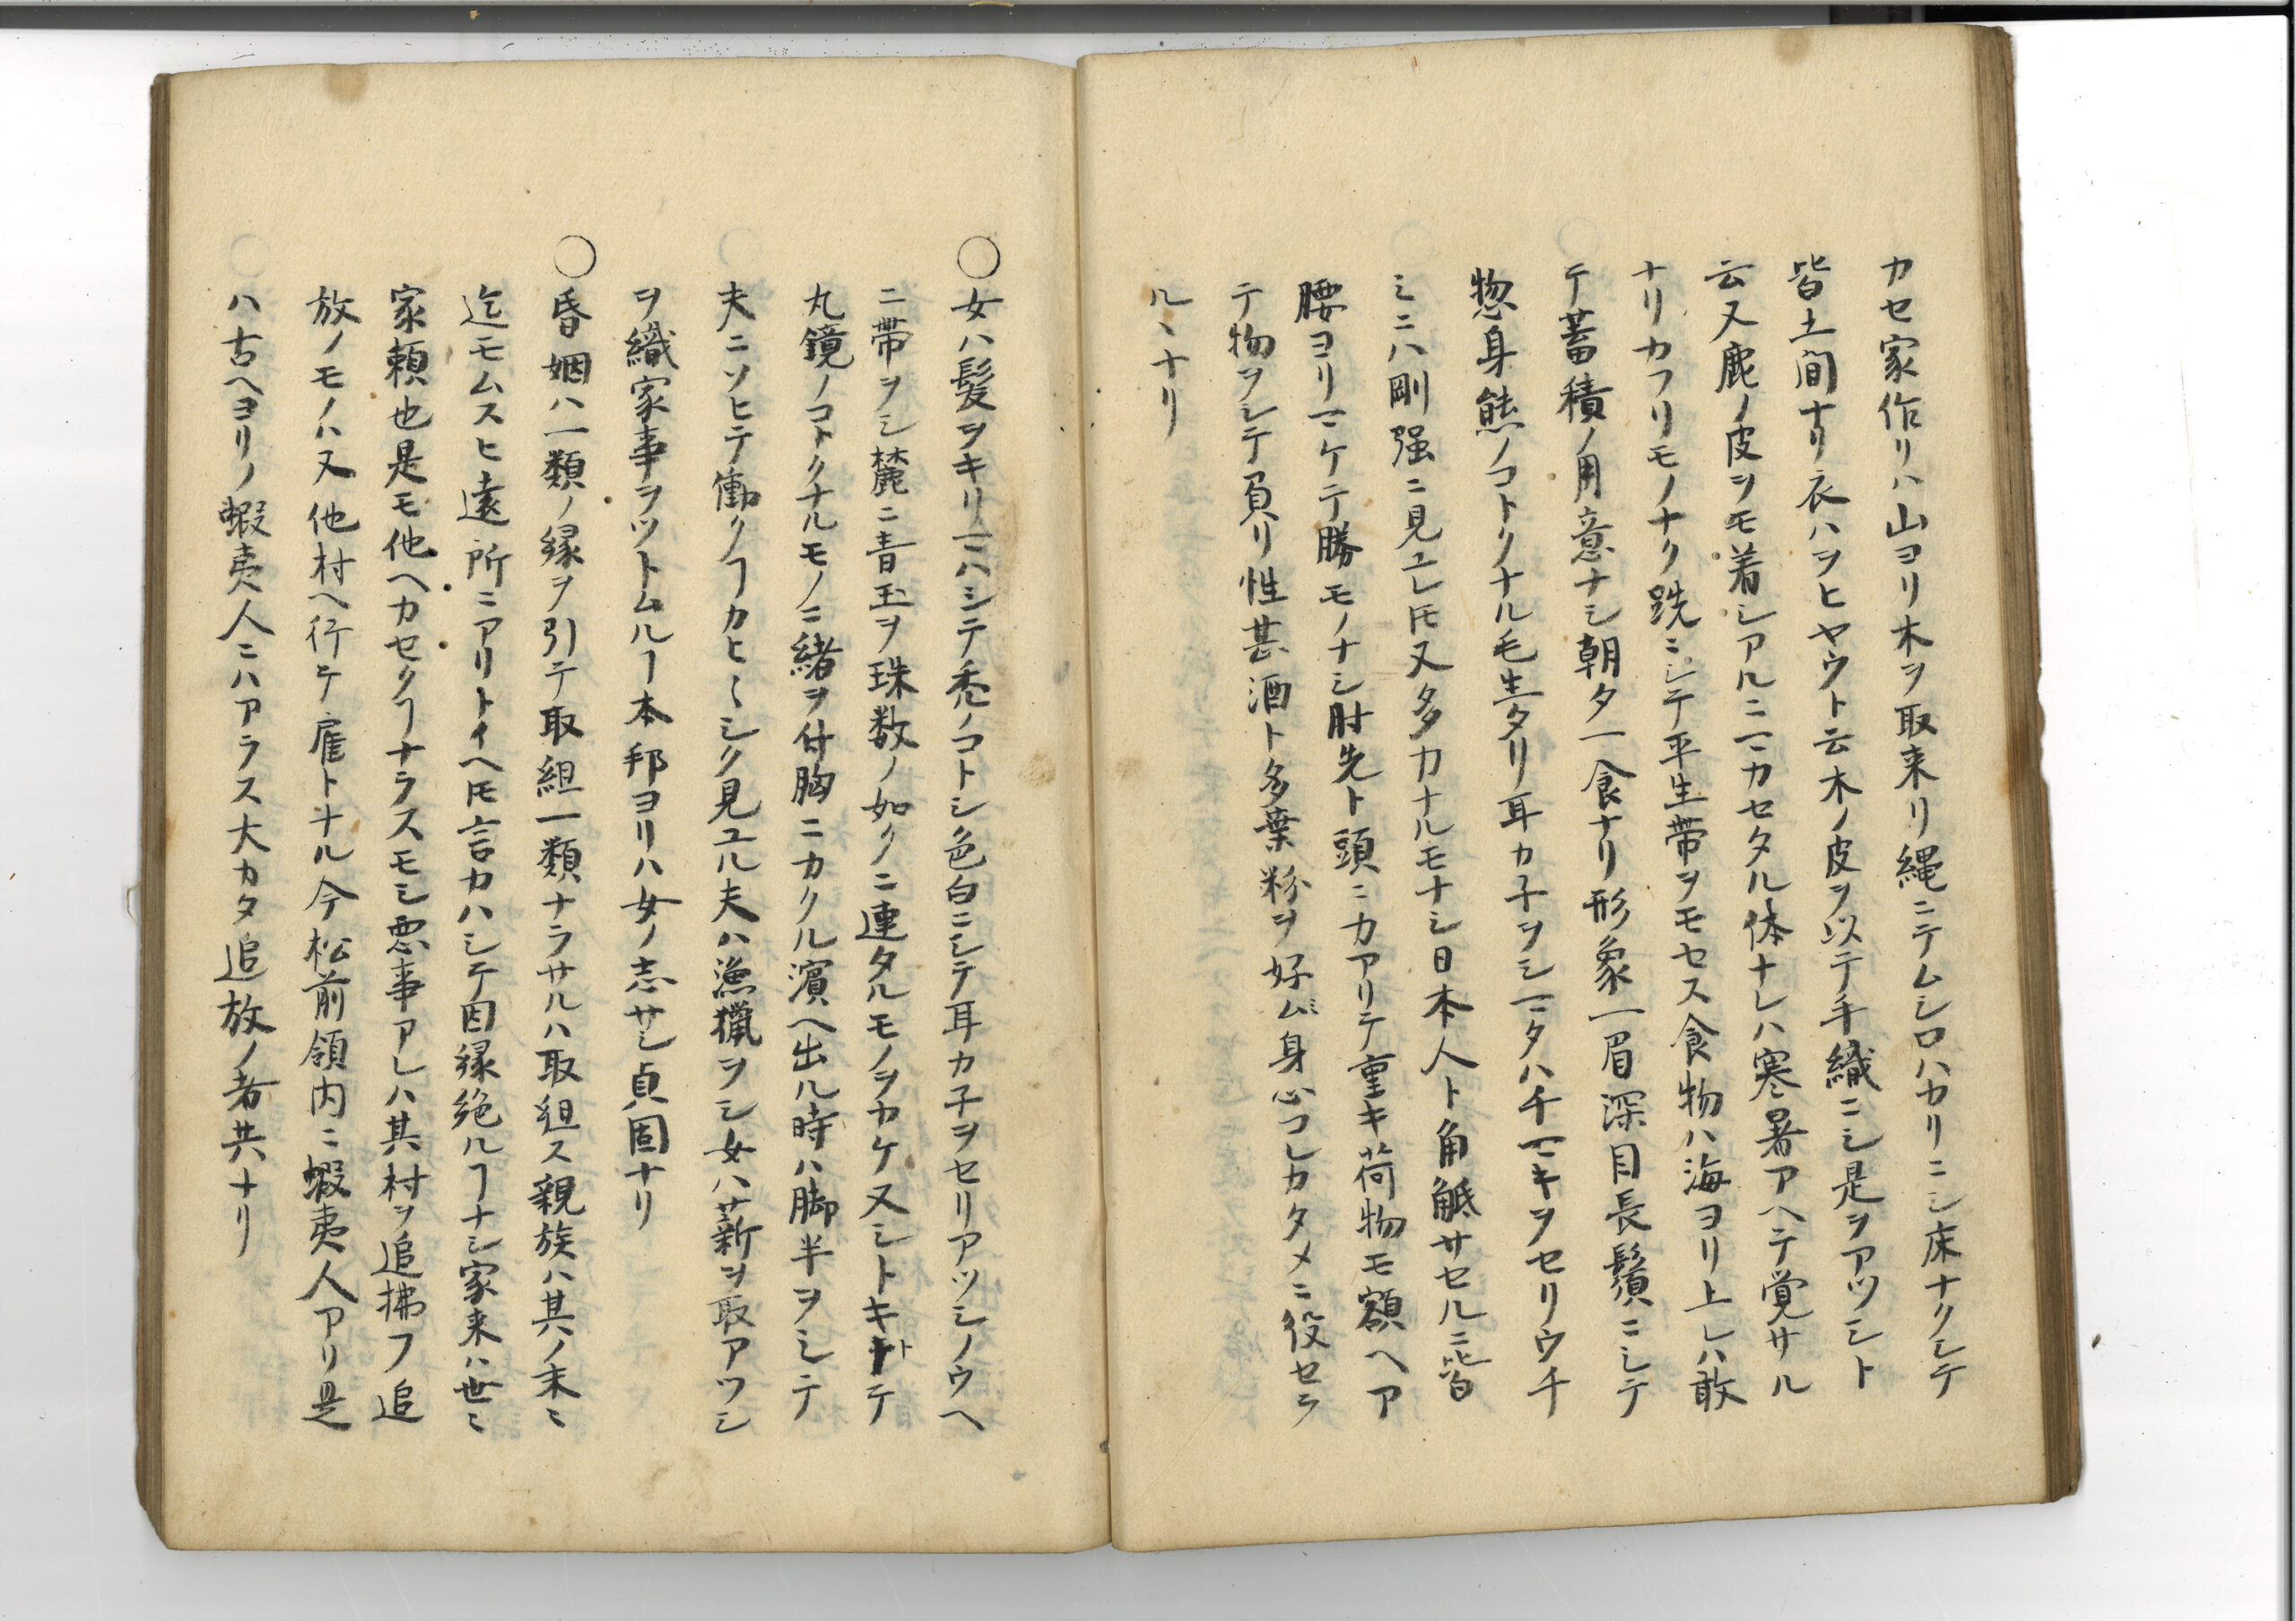 カセ家作リハ山ヨリ木ヲ取来リ縄ニテムシロハカリニシ床ナクシテ
皆土間ナリ衣ハヲヒヤウト云木ノ皮ヲ以テ手織ニシ是ヲアツシト
云又鹿ノ皮ヲモ着シアルニマカセタル体ナレハ寒暑アヘテ覚サル
ナリカフリモノナク跣ニシテ平生帯ヲモセス食物ハ海ヨリ上レハ敢
テ蓄積ノ用意ナシ朝夕一食ナリ形象一眉深目長鬚ニシテ
惣身熊ノコトクナル毛生タリ耳カ子ヲシマタハチマキヲセリウチ
ミニハ剛强ニ見ユレ𪜈又多力ナルモナシ日本人ト角觝サセルニ皆
腰ヨリマケテ勝モノナシ肘先ト頭ニカアリテ重キ荷物モ額ヘア
テ物ヲシテ負リ性甚酒ト多葉粉ヲ好ム身心コレカタメニ役セラ
ルヽナリ
○女ハ髪ヲキリマハシテ禿ノコトシ色白ニシテ耳カ子ヲセリアツシノウヘ
ニ帯ヲシ麓ニ青玉ヲ珠数ノ如クニ連タルモノヲカケ又シトキトテ
丸鏡ノコトクナルモノニ緒ヲ付胸ニカクル濱ヘ出ル時ハ脚半ヲシテ
夫ニソヒテ働クヿカヒ〱シク見ユル夫ハ漁猟ヲシ女ハ薪ヲ取アツシ
ヲ織家事ヲツトムルヿ本邦ヨリハ女ノ志サシ貞固ナリ
○昏姻ハ一類ノ縁ヲ引テ取組一類ナラサルハ取組ス親族ハ其ノ末ミ
迄モムスヒ遠所ニアリトイヘ𪜈言カハシテ因縁絶ルヿナシ家来ハ世ミ
家頼也是モ他ヘカセクヿナラスモシ悪事アレハ其村ヲ追拂フ追
放ノモノハ又他村ヘ行テ雇トナル今松前領内ニ蝦夷人アリ是
ハ古ヘヨリノ蝦夷人ニハアラス大カタ追放ノ者共ナリ